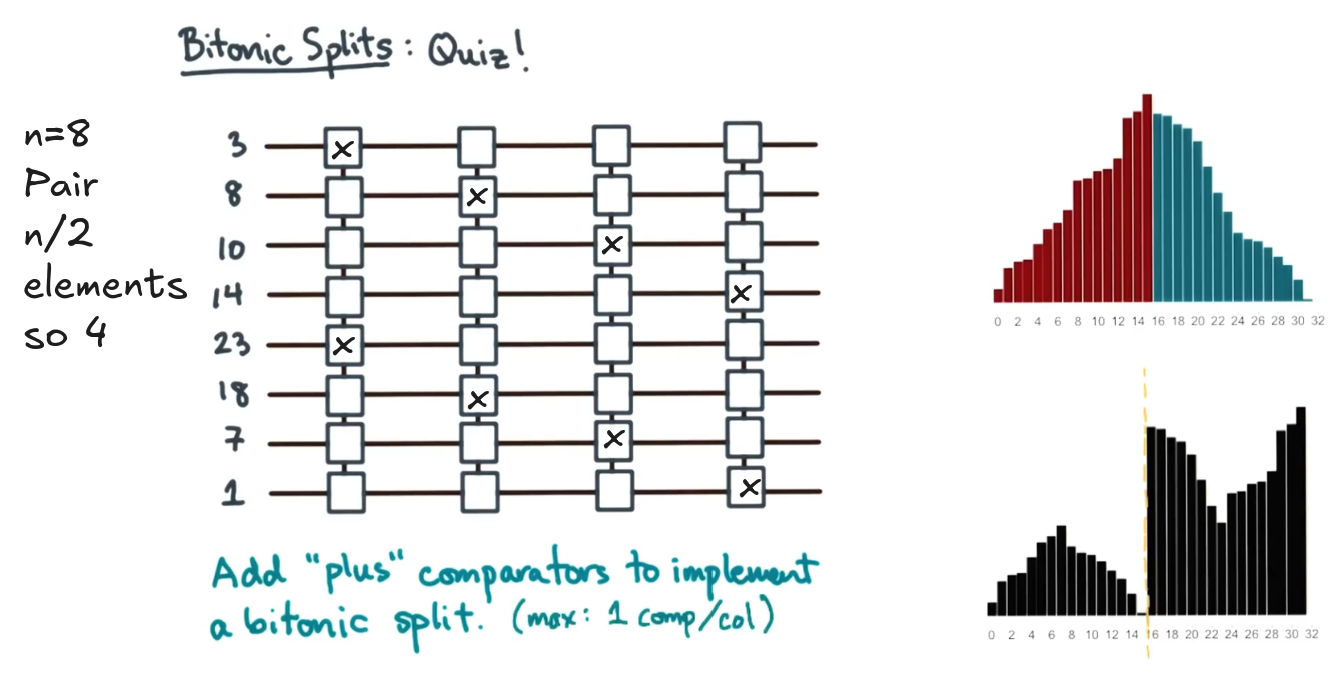 Bitonic Splits: Quiz!
n=8
Pair
n/2
elements
so 4
3
8
10
14
23
18
7
1
Add "plus" comparators to implement
a bitonic split. (max: 1 comp/col)
0 2 4 6 8 10 12 14 16 18 20 22 24 26 28 30 32
0 2 4 6 8 10 12 14 16 18 20 22 24 26 28 30 32